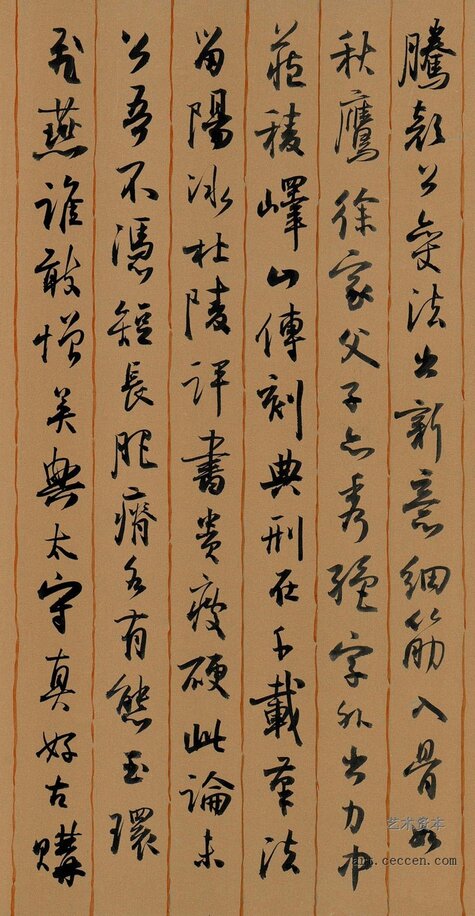 騰顏公變法出新意細筋入骨如
秋鷹徐家父子亦秀絕字外出力中
藏稜嶧山傳刻典刑在千載筆法
留陽冰杜陵評書貴瘦硬此論未
公吾不憑短長肥瘠各有態玉環
飛燕誰敢憎吳興太守真好古購
艺术资本
art.ceccen.com